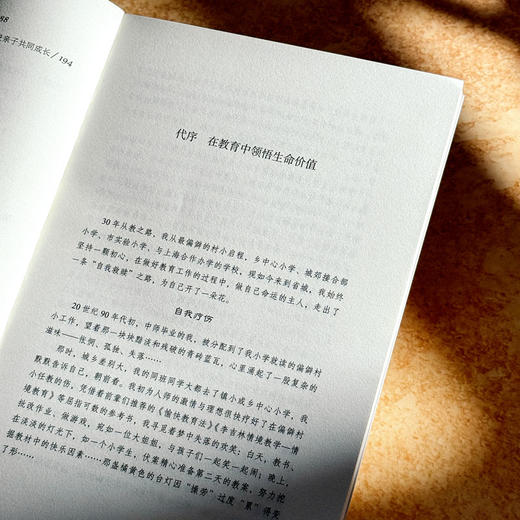 88
亲子共同成长/194
代序 在教育中领悟生命价值
30年从教之路，我从最偏僻的村小启程，乡中心小学、城郊接合部
小学、市实验小学、与上海合作办学的学校，现如今来到省城，我始终
坚持一颗初心，在做好教育工作的过程中，做自己命运的主人，走出了
一条“自我救赎”之路，为自己开了一朵花。
自我疗伤
20世纪90年代初，中师毕业的我，被分配到了我小学就读的偏僻村
小工作，望着那一块块黯淡和残破的青砖蓝瓦，心里涌起了一股复杂的
滋味——怅惘、孤独、失落……
那时，城乡差别大，我的同班同学大都去了镇小或乡中心小学，我
默默告诉自己，朝前看。我初为人师的激情与理想很快疗好了在偏僻村
小任教的伤，凭借着前辈们推荐的《愉快教育法》《李吉林情境教学—情
境教育》等屈指可数的参考书，我寻见着梦中失落的欢笑：白天，教书、
批改作业、做游戏，宛如一位大姐姐，与孩子们一起笑一起闹；晚上，
在淡淡的灯光下，如一个小学生，伏案精心准备第二天的教案，努力挖
掘教材中的快乐因素……那盏橘黄色的台灯因“操劳”过度“累”得哭
了形……